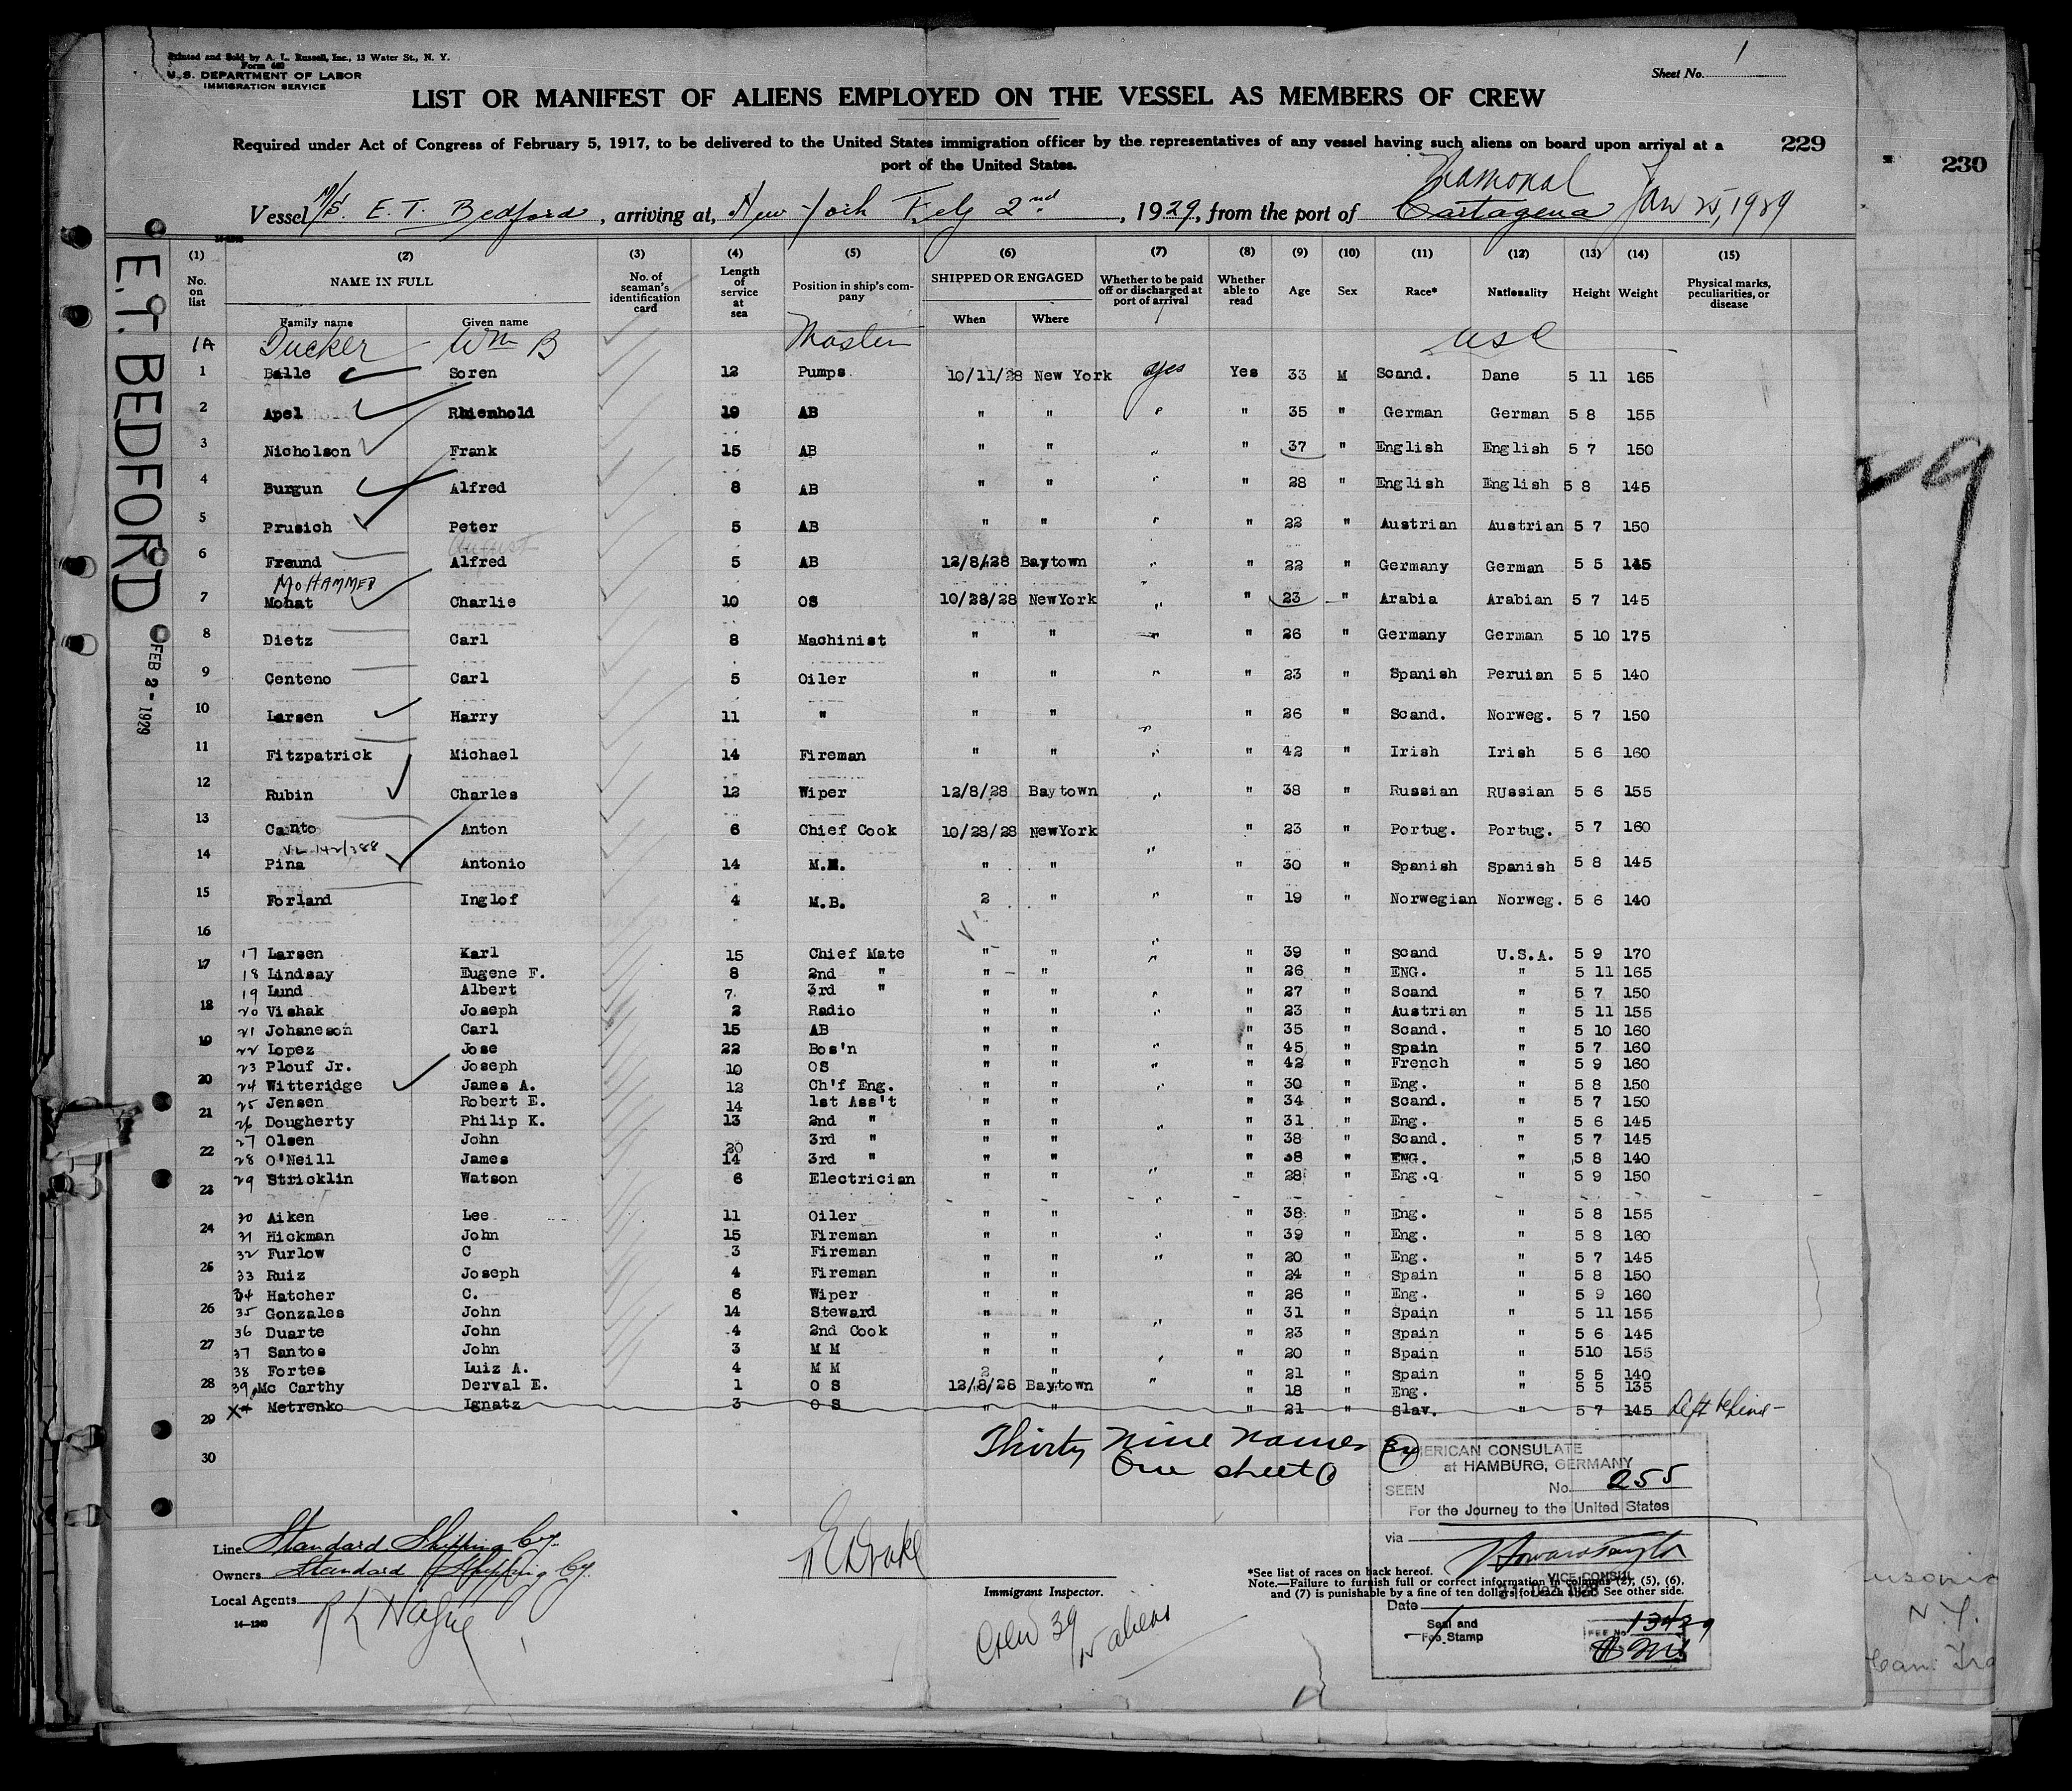 Printed and Sold by A. L. Russell, Inc., 13 Water St., N. Y.
Form 680
U. S. DEPARTMENT OF LABOR
IMMIGRATION SERVICE
Sheet No. 1
LIST OR MANIFEST OF ALIENS EMPLOYED ON THE VESSEL AS MEMBERS OF CREW
Required under Act of Congress of February 5, 1917, to be delivered to the United States immigration officer by the representatives of any vessel having such aliens on board upon arrival at a
port of the United States.
229
230
Vessel M/S. E. T. Bedford, arriving at, New York Feby 2nd, 1929, from the port of Cartagena Jan 25, 1929
E.T. BEDFORD
FEB 2 - 1929
(1) (2) (3) (4) (5) (6) (7) (8) (9) (10) (11) (12) (13) (14) (15)
No. on list NAME IN FULL No. of seaman's identification card Length of service at sea Position in ship's company SHIPPED OR ENGAGED Whether to be paid off or discharged at port of arrival Whether able to read Age Sex Race* Nationality Height Weight Physical marks, peculiarities, or disease
Family name Given name When Where
1A Tucker Wm B Master USC
1 Balle Soren 12 Pumps 10/11/28 New York yes Yes 33 M Scand. Dane 5 11 165
2 Apel Rhienhold 19 AB " " " " 35 " German German 5 8 155
3 Nicholson Frank 15 AB " " " " 37 " English English 5 7 150
4 Burgun Alfred 8 AB " " " " 28 " English English 5 8 145
5 Prusich Peter 5 AB " " " " 22 " Austrian Austrian 5 7 150
August
6 Freund Alfred 5 AB 12/8/28 Baytown " " 22 " Germany German 5 5 145
MOHAMMED
7 Mohat Charlie 10 OS 10/28/28 NewYork " " 23 " Arabia Arabian 5 7 145
8 Dietz Carl 8 Machinist " " " " 26 " Germany German 5 10 175
9 Centeno Carl 5 Oiler " " " " 23 " Spanish Peruian 5 5 140
10 Larsen Harry 11 " " " " 26 " Scand. Norweg. 5 7 150
11 Fitzpatrick Michael 14 Fireman " " " " 42 " Irish Irish 5 6 160
12 Rubin Charles 12 Wiper 12/8/28 Baytown " " 38 " Russian RUssian 5 6 155
13 Canto Anton 6 Chief Cook 10/28/28 NewYork " 23 " Portug. Portug. 5 7 160
VL 142/388
14 Pina Antonio 14 M.M. " " " " 30 " Spanish Spanish 5 8 145
15 Forland Inglof 4 M.B. 2 " " " 19 " Norwegian Norweg. 5 6 140
16
17 Larsen Karl 15 Chief Mate " " " " 39 " Scand U.S.A. 5 9 170
17
18 Lindsay Eugene F. 8 2nd " " " " " 26 " ENG. " 5 11 165
19 Lund Albert 7 3rd " " " " " 27 " Scand " 5 7 150
18
20 Vishak Joseph 2 Radio " " " " 23 " Austrian " 5 11 155
21 Johaneson Carl 15 AB " " " 35 " Scand. " 5 10 160
19
22 Lopez Jose 22 Bos'n " " " " 45 " Spain " 5 7 160
23 Plouf Jr. Joseph 10 OS " " " " 42 " French " 5 9 160
20
24 Witteridge James A. 12 Ch'f Eng. " " " " 30 " Eng. " 5 8 150
25 Jensen Robert E. 14 1st Ass't " " " 34 " Scand. " 5 7 150
21
26 Dougherty Philip K. 13 2nd " " " " " 31 " Eng. " 5 6 145
27 Olsen John 20 3rd " " " " 38 " Scand. " 5 7 145
22
28 O'Neill James 14 3rd " " " " 38 " ENG. " 5 8 140
29 Stricklin Watson 6 Electrician " " " " 28 " Eng.q " 5 9 150
23
30 Aiken Lee 11 Oiler " " " 38 " Eng. " 5 8 155
24
31 Hickman John 15 Fireman " " " " 39 " Eng. " 5 8 160
32 Furlow C 3 Fireman " " " " 20 " Eng. " 5 7 145
25
33 Ruiz Joseph 4 Fireman " " " 24 " Spain " 5 8 150
34 Hatcher C. 6 Wiper " " " 26 " Eng. " 5 9 160
26
35 Gonzales John 14 Steward " " " 31 " Spain " 5 11 155
36 Duarte John 4 2nd Cook " " " " 23 " Spain " 5 6 145
27
37 Santos John 3 M M " " " 20 " Spain " 510 155
38 Fortes Luiz A. 4 M M 2 " " " 21 " Spain " 5 5 140
28
39 Mc Carthy Derval E. 1 O S 12/8/28 Baytown " " 18 " Eng. " 5 5 135
Metrenko Ignatz 3 O S " " " 21 " Slav. " 5 7 145 Left behind -
29
30
Thirty Nine Names
One sheet
AMERICAN CONSULATE
at HAMBURG, GERMANY
SEEN No. 255
For the Journey to the United States
via
VICE CONSUL
Date
Seal and
Fee Stamp
FEE No. 13429
Line Standard Shipping Co.
Owners Standard Shipping Co.
Local Agents R L Hague
14-1240
Immigrant Inspector.
Crew 39
15 aliens
*See list of races on back hereof.
Note.—Failure to furnish full or correct information in columns (2), (5), (6),
and (7) is punishable by a fine of ten dollars for each alien. See other side.
N. Y.